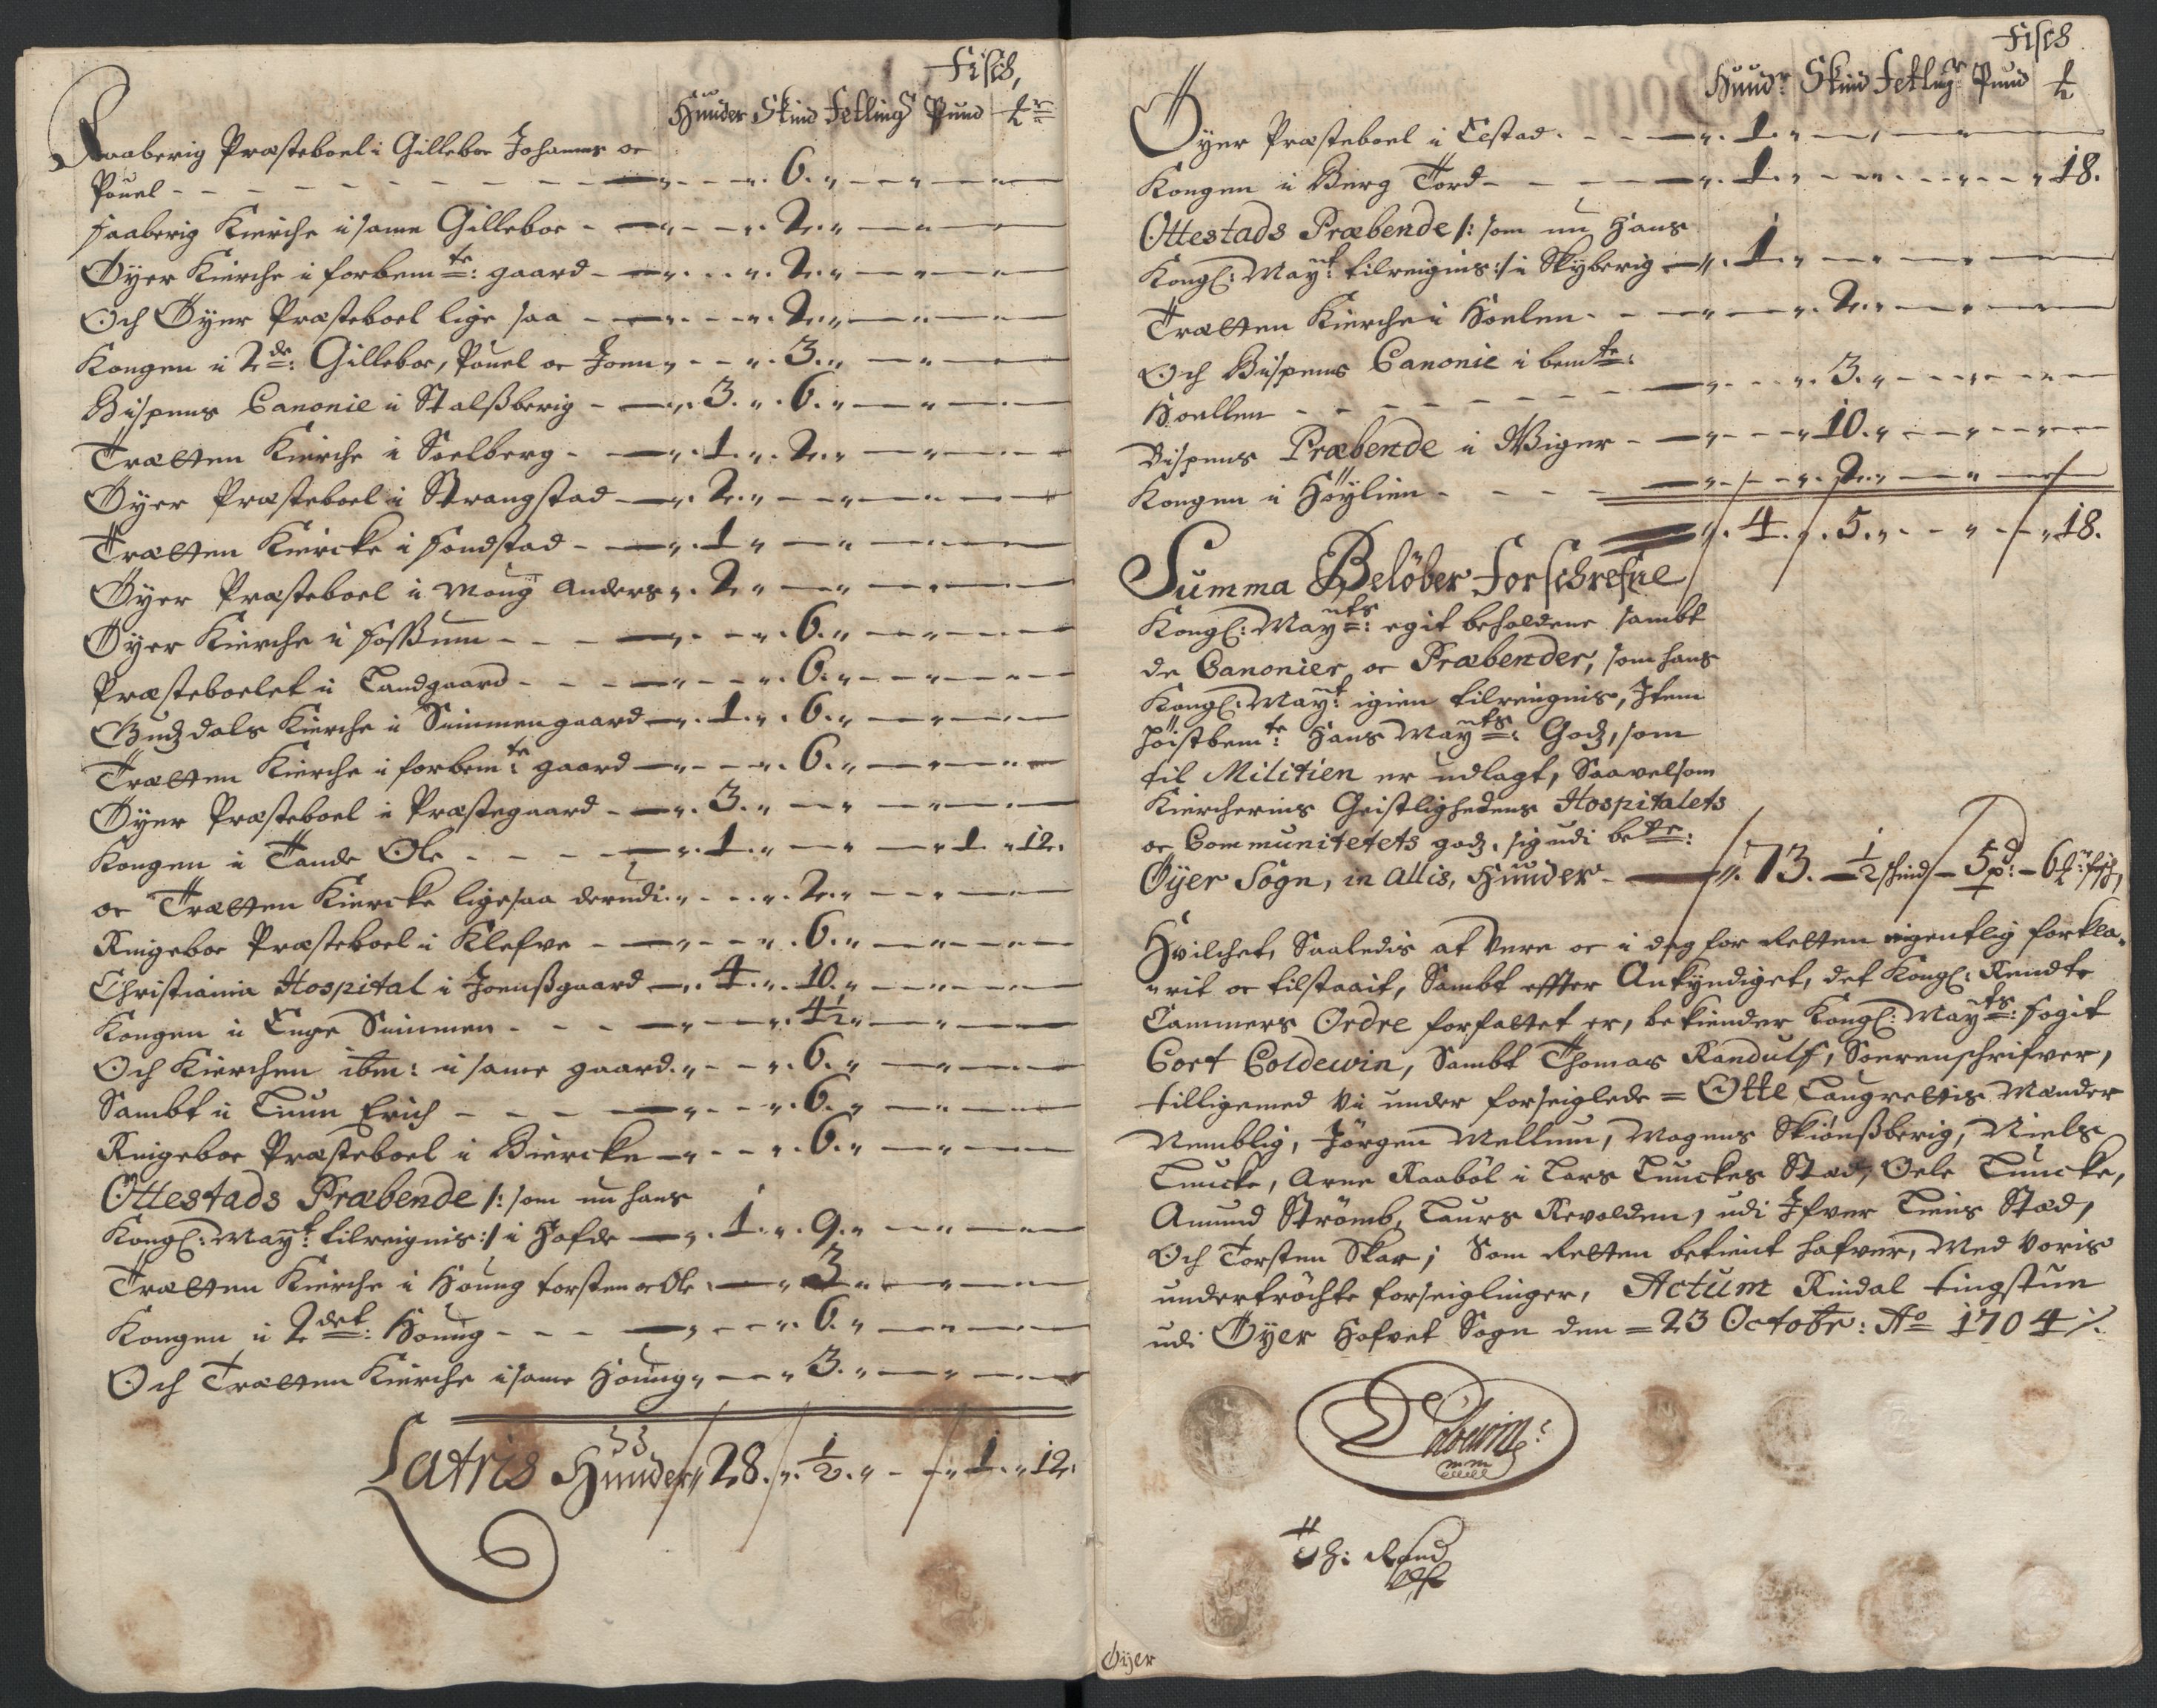 Fisch,
Huuder Skind Fetling Pund
Faaberig Præsteboel i Gilleboe Johannes oc
Pouel - - - 6.
Faaberig Kierche i same Gilleboe - 2.
Øyer Kierche i forbemte: gaard - 2.
Och Øyer Præsteboel lige saa - 2.
Kongen i 2de: Gilleboe, Pouel oc Joen 3.
Bispens Canonie i Stalßberig - 3. 6.
Trætten Kierche i Soelberg - 1. 2.
Øyer Præsteboel i Strangstad - 2.
Trætten Kiercke i Sondstad - 1
Øyer Præsteboel i Moug Anders 2
Øyer Kierche i Fossum - 6.
Præsteboelet i Landgaard - 6.
Gudzdals Kierche i Simmengaard 1. 6.
Trætten Kierche i forbemte gaard 6.
Øyer Præsteboel i Præstegaard - 3.
Kongen i Tande Ole - 1. 1 12.
oc Trætten Kiercke ligesaa derudi 2.
Ringeboe Præsteboel i Klefve - 6.
Christiania Hospital i Joenßgaard 4. 10.
Kongen i Enge Simmen - 4½
Och Kierchen ibm: i same gaard 6.
Sambt i Tuun Erich - 6.
Ringeboe Præsteboel i Biercke 6.
Ottestads Præbende /: som nu hans
Kongl: Mayt tilreignis :/ i Hofde 1. 9.
Trætten Kierche i Houng torsten oc Ole 3
Kongen i 2det: Houng - 6.
Och Trætten Kierche i same Houng 3.
Latris Huuder 28. ½ 1. 12.
Fisch
Huudr Skind Fetlingr Pund
Øyer Præsteboel i Eestad - 1.
Kongen i Berg Tord - 1. 18.
Ottestads Præbende /: som nu Hans
Kongl: Mayt tilreignis :/ i Skyberig 1.
Trætten Kierche i Hoelen - 2.
Och Bispens Canonie i bemte:
Hoellen - 3.
Bispens Præbende i Wiger - 10.
Kongen i Höylien - 2.
4. 5. 18.
Summa Belöber Forschrefne
Kongl: Mayts: egit beholdene sambt
de Canonier oc Præbender, som hans
Kongl: Mayt igien tilreignis, Item
höistbemte Hans Mayts: Godz, som
til Militien er udlagt, Saavelsom
Kierchernis Geistlighedens Hospitalets
oc Communitetets godz, sig udi bete:
Öyer Sogn, in allis, Huuder - 73. - ½ skind - 5 pd: - 6 fisch,
Hvilchet, Saaledis at Vere oc i dag for Retten eigentlig forkla-
rit oc tilstaait, Sambt effter Ankyndiget, det Kongl: Rendte
Cammers Ordre forfattet er, bekiender Kongl: Mayts: fogit
Cort Coldewin, Sambt Thomas Randulf, Sorenschrifver,
tilligemed Vi under forseiglede = Otte Laugrettis Mænder
Nemblig, Jörgen Mellum, Mogens Skiönßberig, Niels
Luncke, Arne Raaböl i Lars Lunckes Stæd, Oele Luncke,
Amund Strömb, Laurs Revolden, udi Ifver Liens Stæd,
Och Torsten Skar; Som Retten betient hafver, Med Voris
undertröchte forseiglinger, Actum Rindal tingstue
udi Øyer Hofvet Sogn den = 23 Octobr: Ao 1704 ∕.
Coldewin:
Th: Rand
ulf
Øijer